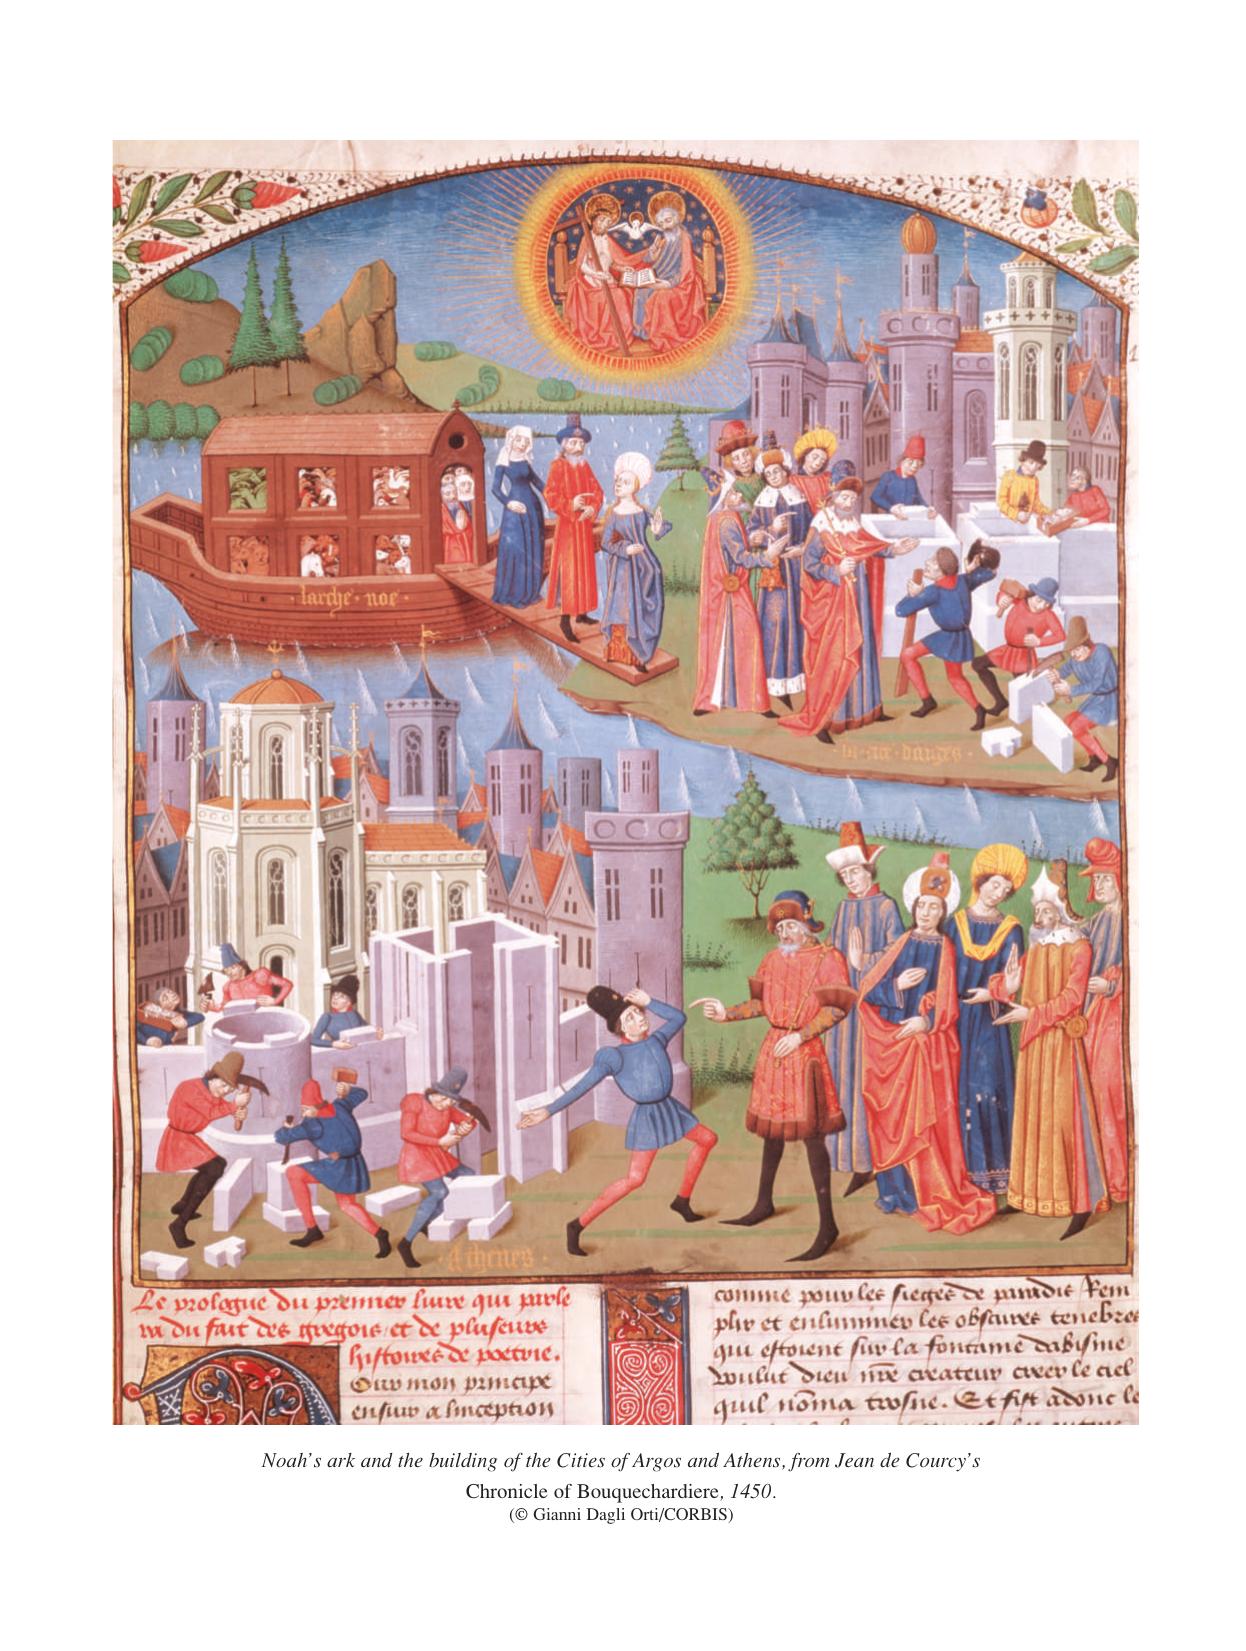 larche · noe ·
Athenes ·
Le prologue du premier liure qui parle
ra du fait des gregois et de pluseurs
histoires de poetrie.
Our mon principe
ensuir a linception
comme pour les sieges de paradis Rem
plir et enluminer les obscures tenebres
qui estoient sur la fontaine dabisme
voulut dieu nre createur creer le ciel
quil noma trosne. Et fist adonc le
Noah's ark and the building of the Cities of Argos and Athens, from Jean de Courcy's
Chronicle of Bouquechardiere, 1450.
(© Gianni Dagli Orti/CORBIS)